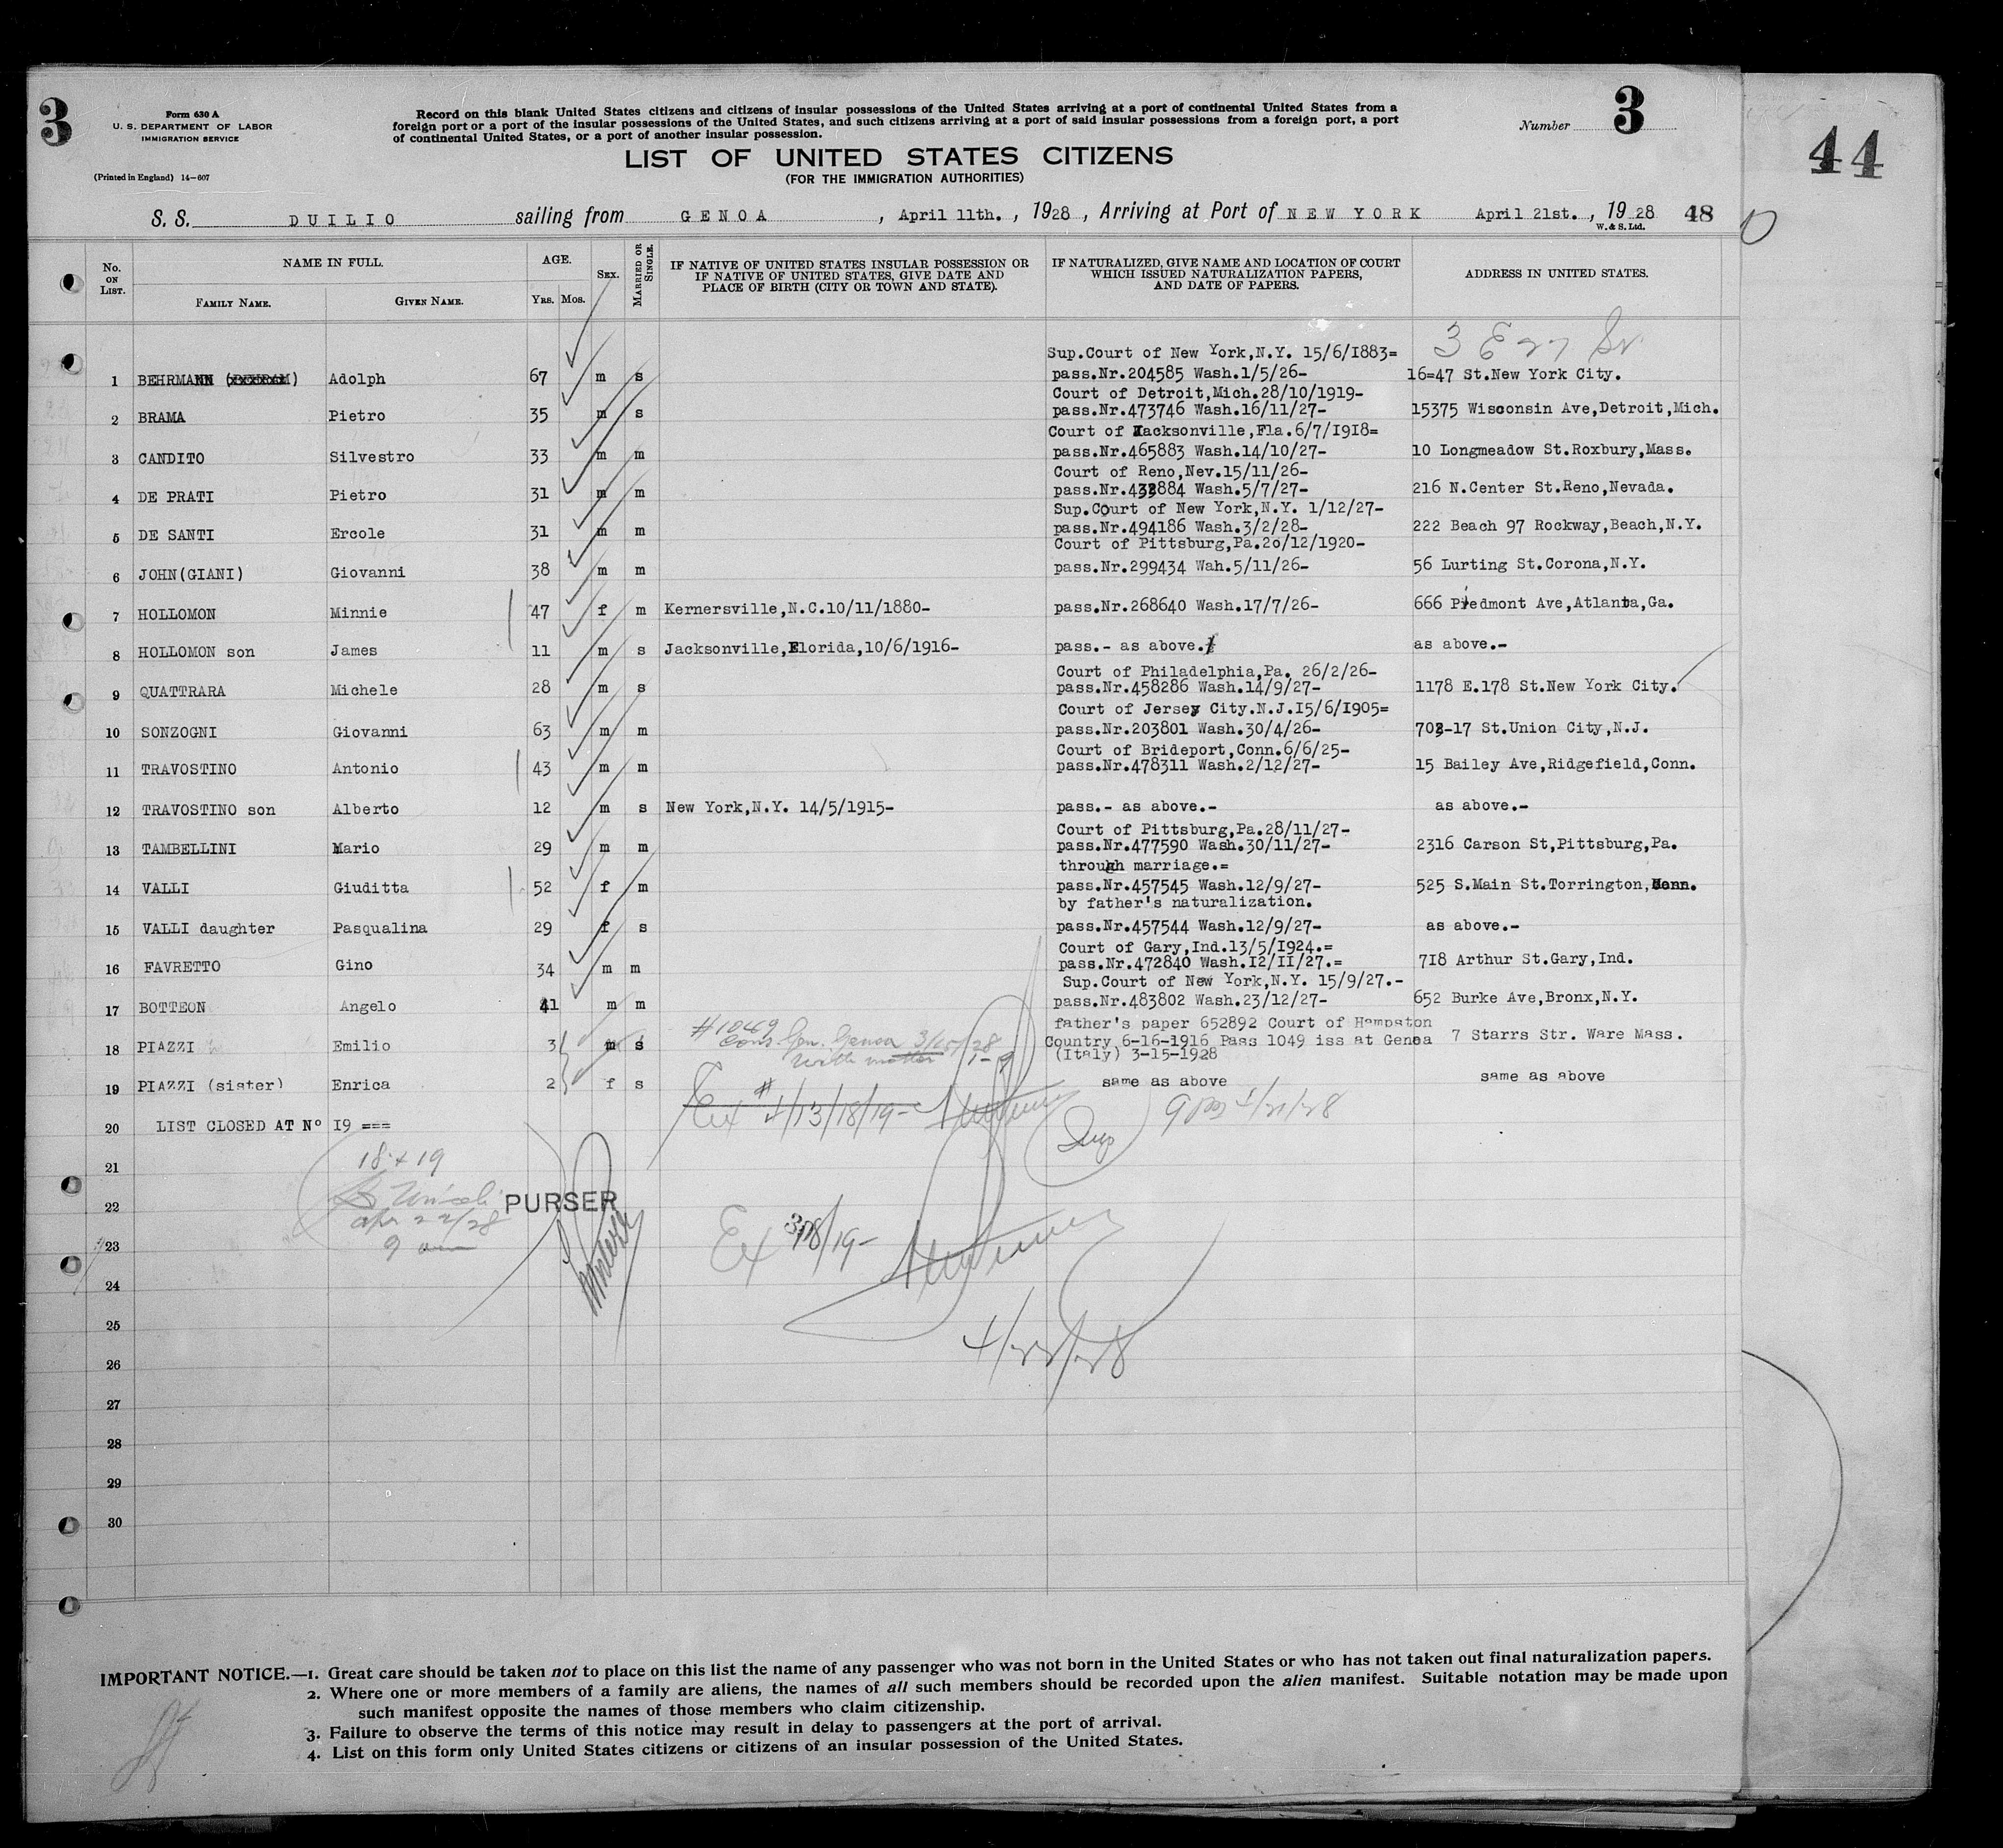 3
Form 630 A
U. S. DEPARTMENT OF LABOR
IMMIGRATION SERVICE
(Printed in England) 14-607
Record on this blank United States citizens and citizens of insular possessions of the United States arriving at a port of continental United States from a
foreign port or a port of the insular possessions of the United States, and such citizens arriving at a port of said insular possessions from a foreign port, a port
of continental United States, or a port of another insular possession.
Number 3
44
LIST OF UNITED STATES CITIZENS
(FOR THE IMMIGRATION AUTHORITIES)
S. S. DUILIO sailing from GENOA, April 11th., 1928, Arriving at Port of NEW YORK April 21st., 1928 48
W. & S. Ltd.
No. ON LIST. NAME IN FULL. AGE. SEX. MARRIED OR SINGLE. IF NATIVE OF UNITED STATES INSULAR POSSESSION OR IF NATIVE OF UNITED STATES, GIVE DATE AND PLACE OF BIRTH (CITY OR TOWN AND STATE). IF NATURALIZED, GIVE NAME AND LOCATION OF COURT WHICH ISSUED NATURALIZATION PAPERS, AND DATE OF PAPERS. ADDRESS IN UNITED STATES.
FAMILY NAME. GIVEN NAME. YRS. MOS.
3 E 27 St
Sup.Court of New York,N.Y. 15/6/1883=
1 BEHRMANN Adolph 67 m s pass.Nr.204585 Wash.1/5/26- 16=47 St.New York City.
Court of Detroit,Mich.28/10/1919-
2 BRAMA Pietro 35 m s pass.Nr.473746 Wash.16/11/27- 15375 Wisconsin Ave,Detroit,Mich.
Court of Jacksonville,Fla.6/7/1918=
3 CANDITO Silvestro 33 m m pass.Nr.465883 Wash.14/10/27- 10 Longmeadow St.Roxbury,Mass.
Court of Reno,Nev.15/11/26-
4 DE PRATI Pietro 31 m m pass.Nr.432884 Wash.5/7/27- 216 N.Center St.Reno,Nevada.
Sup.Court of New York,N.Y. 1/12/27-
5 DE SANTI Ercole 31 m m pass.Nr.494186 Wash.3/2/28- 222 Beach 97 Rockway,Beach,N.Y.
Court of Pittsburg,Pa.20/12/1920-
6 JOHN(GIANI) Giovanni 38 m m pass.Nr.299434 Wah.5/11/26- 56 Lurting St.Corona,N.Y.
7 HOLLOMON Minnie 47 f m Kernersville,N.C.10/11/1880- pass.Nr.268640 Wash.17/7/26- 666 Piedmont Ave,Atlanta,Ga.
8 HOLLOMON son James 11 m s Jacksonville,Florida,10/6/1916- pass.- as above. as above.-
Court of Philadelphia,Pa. 26/2/26-
9 QUATTRARA Michele 28 m s pass.Nr.458286 Wash.14/9/27- 1178 E.178 St.New York City.
Court of Jersey City.N.J.15/6/1905=
10 SONZOGNI Giovanni 63 m m pass.Nr.203801 Wash.30/4/26- 708-17 St.Union City,N.J.
Court of Brideport,Conn.6/6/25-
11 TRAVOSTINO Antonio 43 m m pass.Nr.478311 Wash.2/12/27- 15 Bailey Ave,Ridgefield,Conn.
12 TRAVOSTINO son Alberto 12 m s New York,N.Y. 14/5/1915- pass.- as above.- as above.-
Court of Pittsburg,Pa.28/11/27-
13 TAMBELLINI Mario 29 m m pass.Nr.477590 Wash.30/11/27- 2316 Carson St,Pittsburg,Pa.
through marriage.=
14 VALLI Giuditta 52 f m pass.Nr.457545 Wash.12/9/27- 525 S.Main St.Torrington,Conn.
by father's naturalization.
15 VALLI daughter Pasqualina 29 f s pass.Nr.457544 Wash.12/9/27- as above.-
Court of Gary,Ind.13/5/1924.=
16 FAVRETTO Gino 34 m m pass.Nr.472840 Wash.12/11/27.= 718 Arthur St.Gary,Ind.
Sup.Court of New York,N.Y. 15/9/27.-
17 BOTTEON Angelo 41 m m pass.Nr.483802 Wash.23/12/27- 652 Burke Ave,Bronx,N.Y.
#1049
Cons. Gen. Genoa 3/15/28
with mother
father's paper 652892 Court of Hampston
18 PIAZZI Emilio 3 m s Country 6-16-1916 Pass 1049 iss at Genoa 7 Starrs Str. Ware Mass.
(Italy) 3-15-1928
19 PIAZZI (sister) Enrica 2 f s same as above same as above
Ex # 4/13/18/19-
20 LIST CLOSED AT No 19 ===
21
18 + 19
22
PURSER
Apr 22/28
23
9 am
Ex 3/18/19-
24
25
4/22/28
26
27
28
29
30
IMPORTANT NOTICE.—1. Great care should be taken not to place on this list the name of any passenger who was not born in the United States or who has not taken out final naturalization papers.
2. Where one or more members of a family are aliens, the names of all such members should be recorded upon the alien manifest. Suitable notation may be made upon
such manifest opposite the names of those members who claim citizenship.
3. Failure to observe the terms of this notice may result in delay to passengers at the port of arrival.
4. List on this form only United States citizens or citizens of an insular possession of the United States.